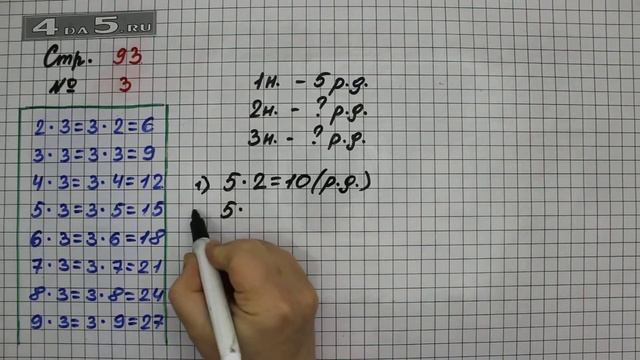 4DA5.RU
Стр. 93
№ 3
2·3=3·2=6
3·3=3·3=9
4·3=3·4=12
5·3=3·5=15
6·3=3·6=18
7·3=3·7=21
8·3=3·8=24
9·3=3·9=27
1н. - 5 р.д.
2н. - ? р.д.
3н. - ? р.д.
1) 5·2=10(р.д.)
5·